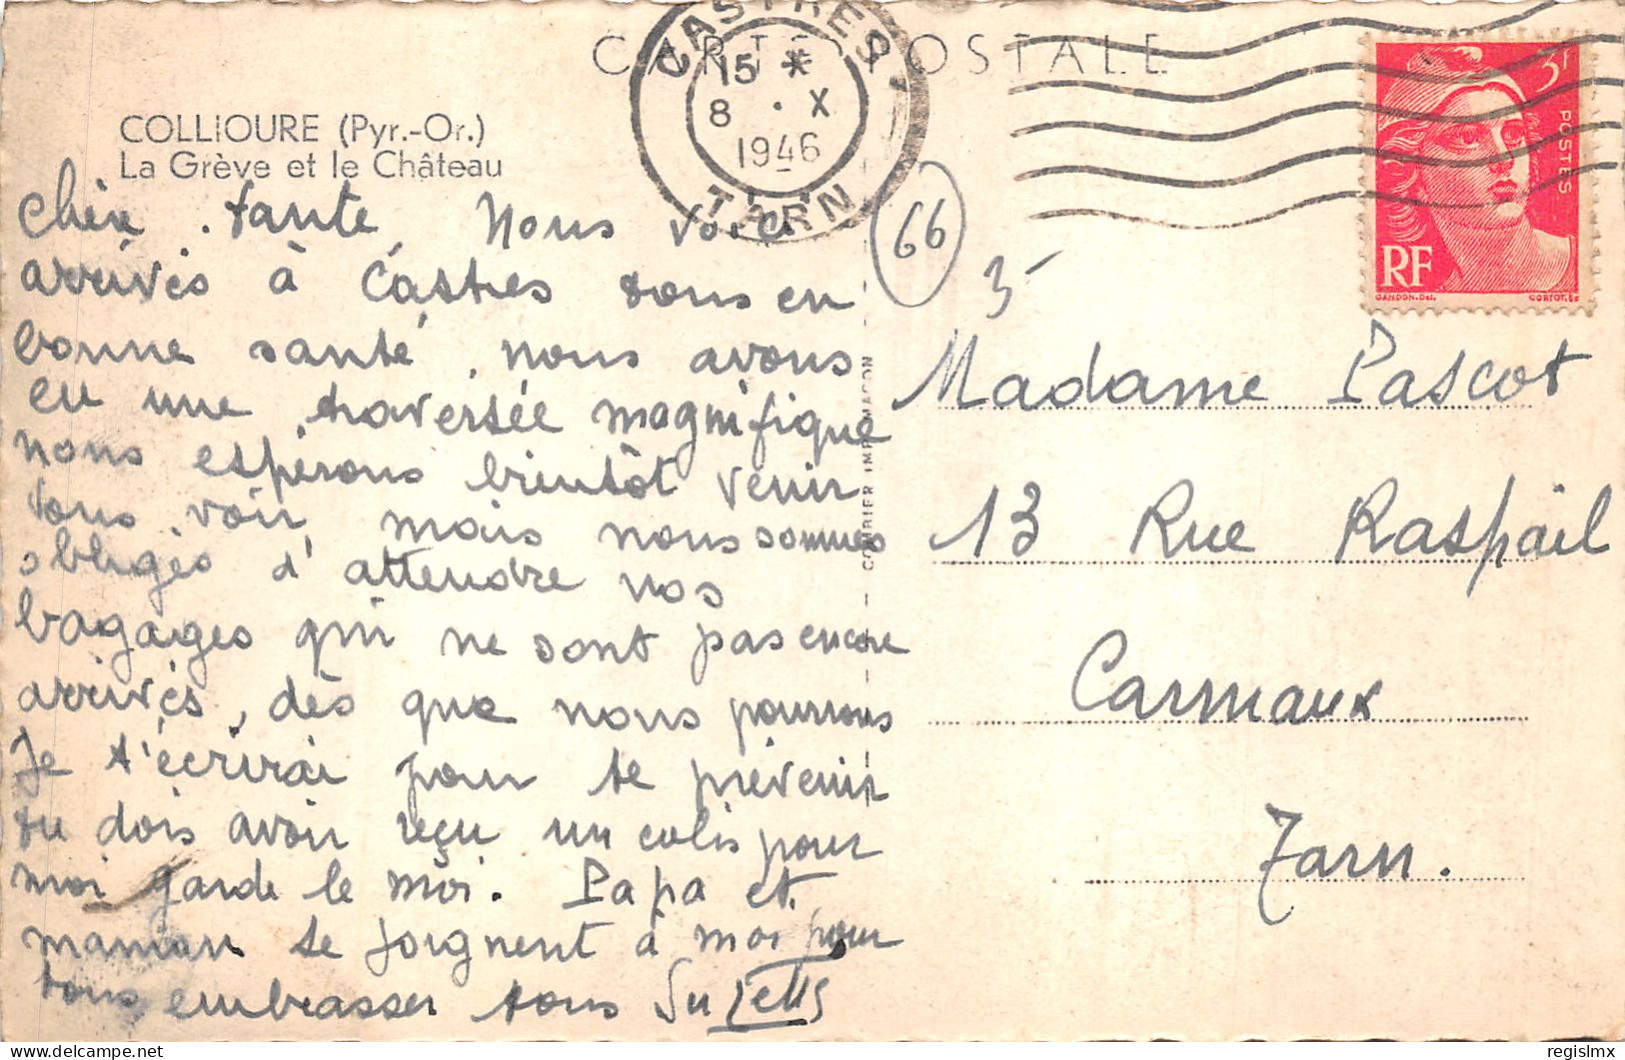 CARTE POSTALE
COLLIOURE (Pyr.-Or.)
La Grève et le Château
CASTRES
15 *
8 . X
1946
TARN
3f
POSTES
RF
GANDON-Del.
CORTOT.Sc
66
3-
chère tante, Nous voici
arrivés à Castres tous en
bonne santé, nous avons
eu une traversée magnifique
nous espérons bientôt venir
vous voir, mais nous sommes
obligés d'attendre nos
bagages qui ne sont pas encore
arrivés, dès que nous pourrons
Je t'écrirai pour te prévenir
tu dois avoir reçu un colis pour
moi garde le moi. Papa et
maman se joignent à moi pour
tous embrasser tous Suzette
COMBIER IMP. MACON
Madame Pascot
13 Rue Raspail
Carmaux
Tarn.
regislmx